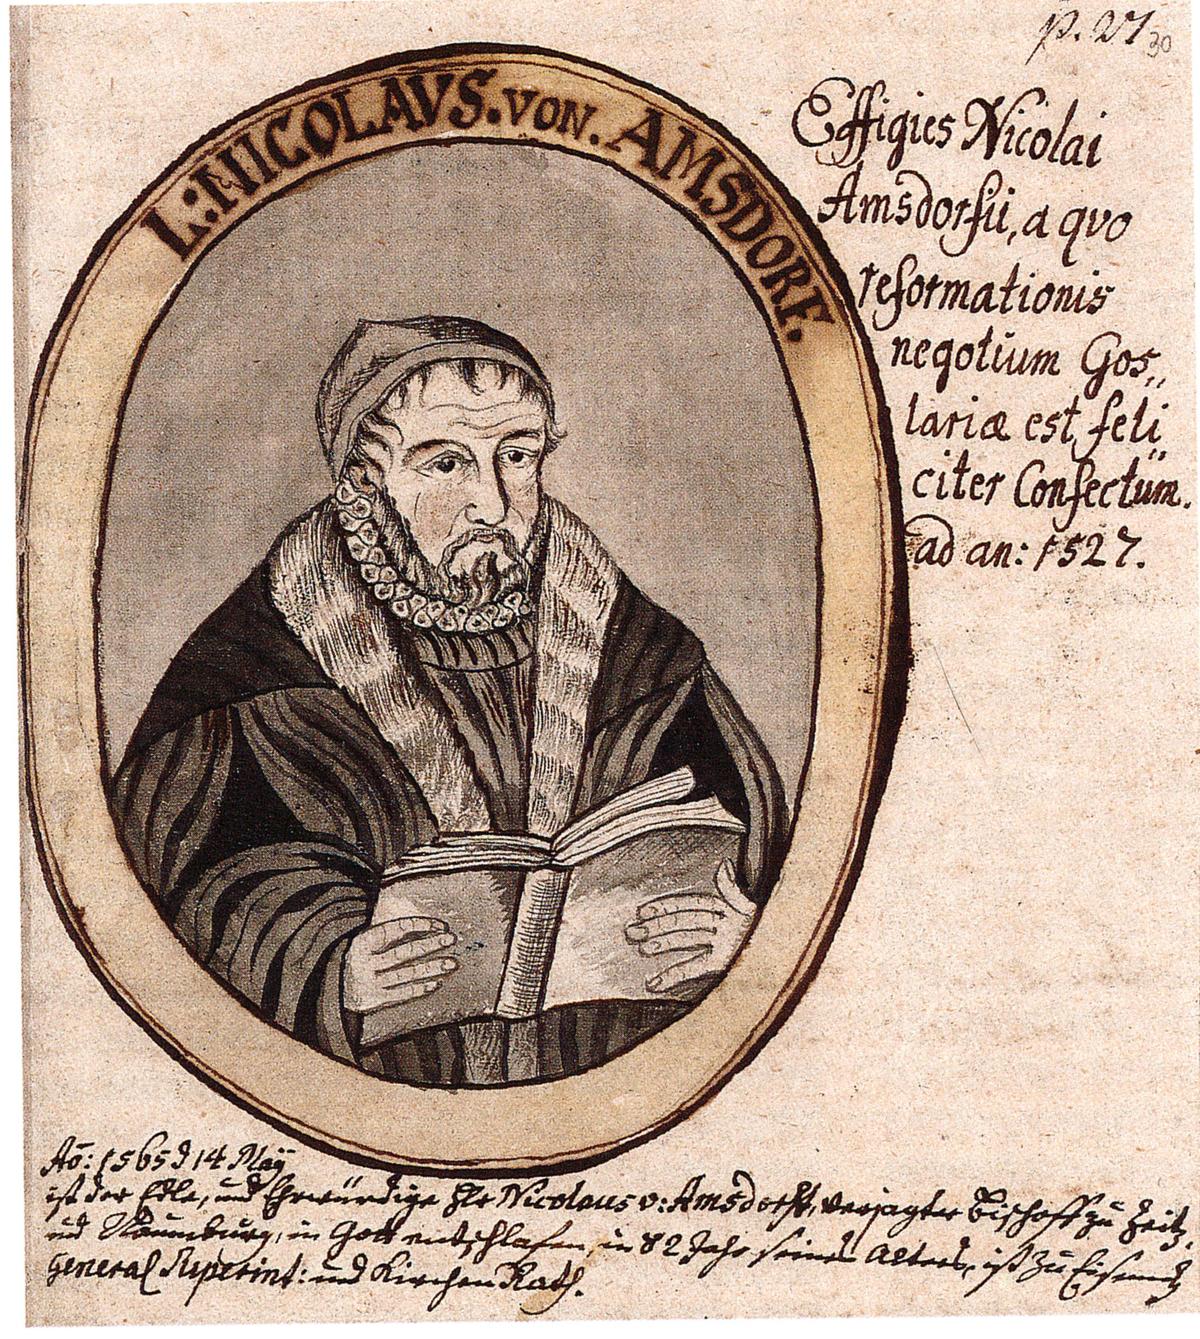 p. 27
30
L: NICOLAVS. VON. AMSDORF.
Effigies Nicolai
Amsdorfii, a qvo
reformationis
negotium Gos„
lariæ est feli„
citer Confectum.
ad an: 1527.
Aō: 1565 d 14 Maÿ
ist der Edle, und Ehrwürdige Hr Nicolaus v: Amsdorff, verjagter Bischoff zu Zeitz
und Naumburg, in Gott entschlafen, in 82 Jahr seines Alters, ist zu Eisenach
General Superint: und Kirchen Rath.